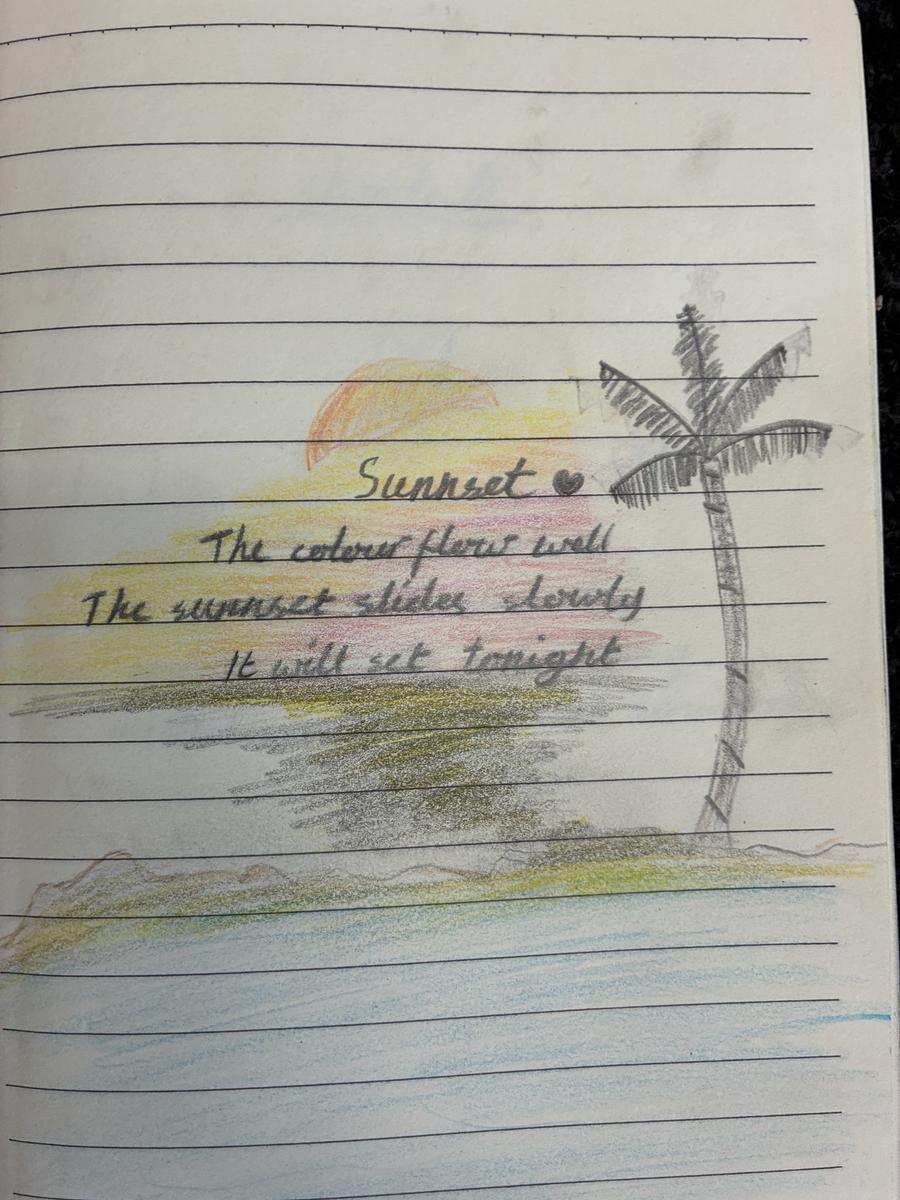 Sunnset ♥
The colour flow well
The sunnset slides slowly
It will set tonight